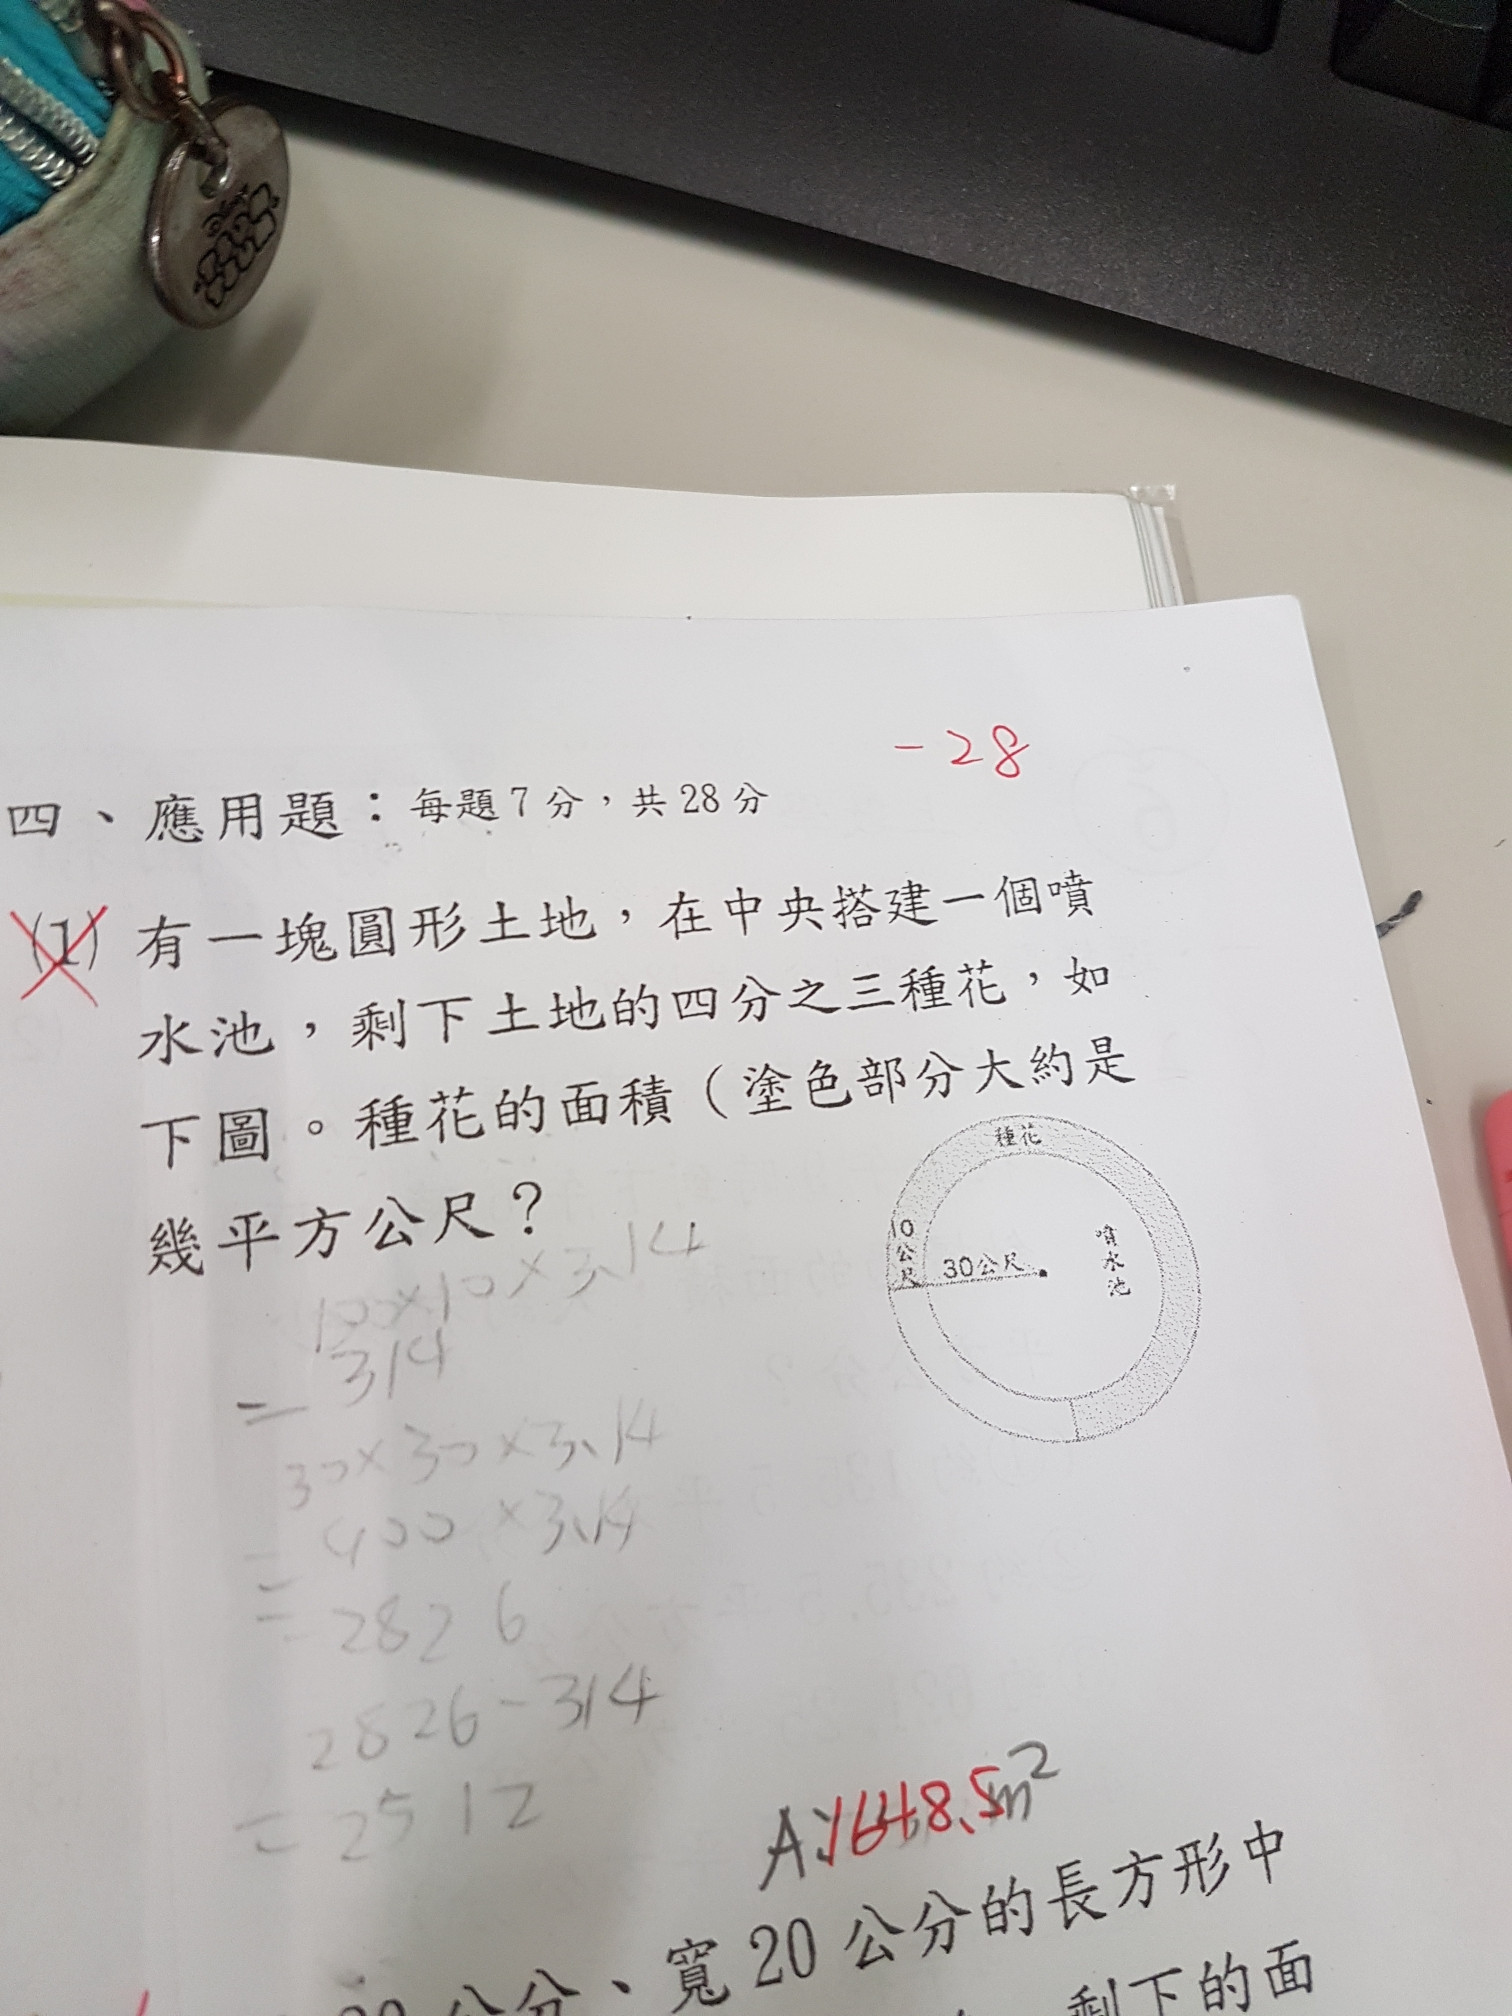 -28
四、應用題：每題7分，共28分
(1) 有一塊圓形土地，在中央搭建一個噴
水池，剩下土地的四分之三種花，如
下圖。種花的面積（塗色部分大約是
幾平方公尺？
種花
10公尺
30公尺
噴水池
10×10×3.14
= 314
30×30×3.14
= 900×3.14
= 2826
2826-314
= 2512
A:1648.5m²
公分、寬20公分的長方形中
剩下的面